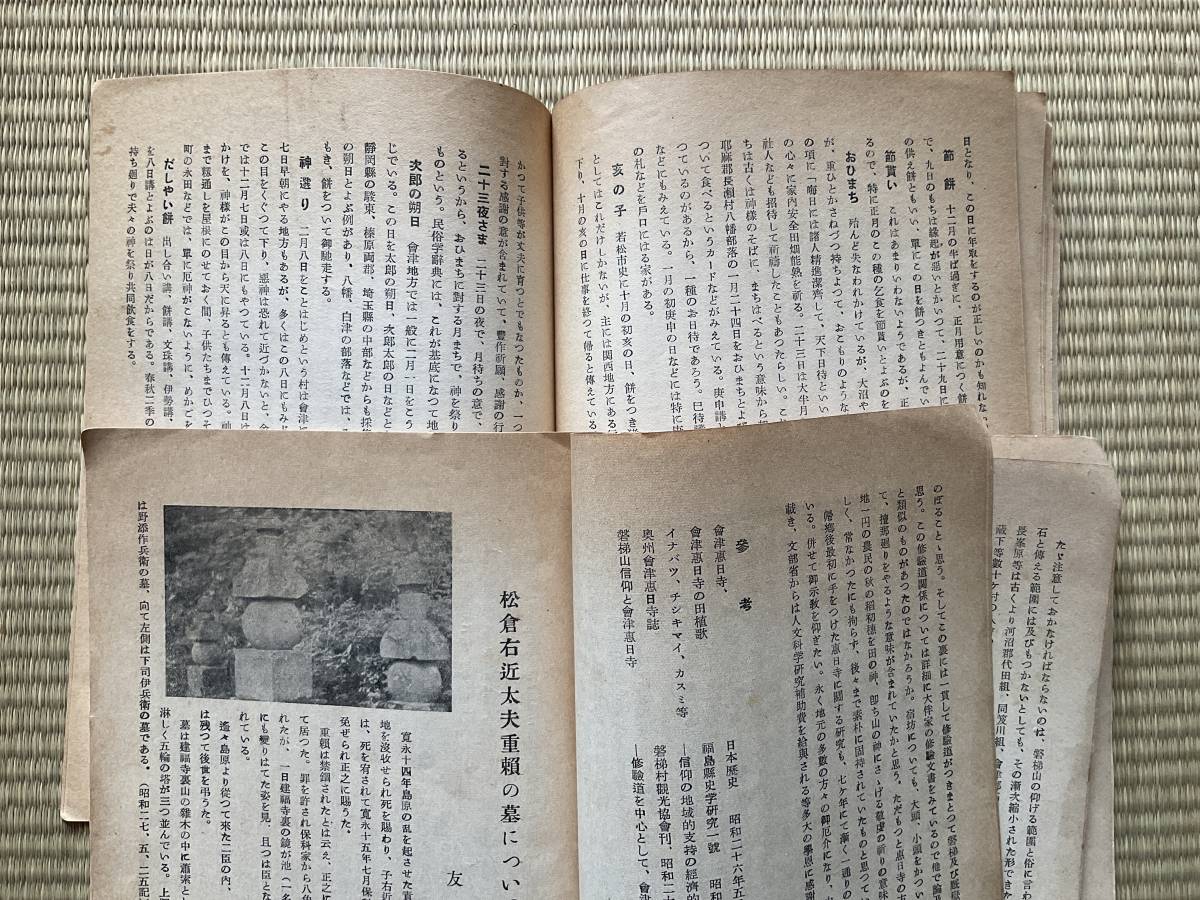 日となり、この日に年取をするのが正しいのかも知れな
節餅 十二月の半ば過ぎに、正月用意につく餅
で、九日のもちは縁起が悪いとかいつて、二十九日に
の供え餅ともいい、單にこの日を餅つきともよんでい
節貰い これはあまりいわないようであるが、正
るので、特に正月のこの種の乞食を節貰いとよぶのを
おひまち 殆んど失なわれかけているが、大沼や
が、重ひとかさねづつ持ちよつて、おこもりのような
の項に「晦日には諸人精進潔齊して、天下日待とい
の心々に家内安全田畑能熟を祈る。二十三日は大半月
社人なども招待して祈禱したこともあつたらしい。こ
ちは古くは神様のそばに、まちはべるという意味から
耶麻郡長瀬村八幡部落の一月二十四日をおひまちとよ
ついて食べるというカードなどがみえている。庚申講と
つているのがあるから、一種のお日待であろう。巳待
などにもみえている。一月の初庚申の日などには特に
の札などを戸口にはる家がある。
亥の子 若松市史に十月の初亥の日、餅をつき
としてはこれだけしかないが、主には関西地方にある
下り、十月の亥の日に仕事を終つて帰ると傳えている
かつて子供等が丈夫に育つとでもなつたものか、一つ
対する感謝の意が含まれていて、豊作祈願、感謝の行
二十三夜さま 二十三日の夜で、月待ちの意で、
るというから、おひまちに対する月まちで、神を祭り
ものという。民俗学辞典には、これが基底になつて地
次郎の朔日 會津地方では一般に二月一日をこう
じでいる。この日を太郎の朔日、次郎太郎の日などと
靜岡縣の駿東、榛原両郡、埼玉縣の中部などからも採
の朔日とよぶ例があり、八幡、白津の部落などでは、
もき、餅をついて御馳走する。
神選り 二月八日をことはじめという村は會津と
七日早朝にやる地方もあるが、多くはこの八日にもみ
この目をくぐつて下り、悪神は恐れて近づかないと、
では十二月七日或は八日にもやつている。十二月八日は
かけを、神様がこの目から天に昇るとも傳えている。神
まで籾通しを屋根にのせておく間、子供たちまでひつそ
町の永田などでは、單に厄神がこないように、めかごを
だしやい餅 出し合い講、餅講、文珠講、伊勢講、
を八日講とよぶのは日が八日だからである。春秋二季の
持ち廻りで夫々の神を祭り共同飲食をする。
たゞ注意しておかなければならないのは、磐梯山の仰げる範囲と俗に言わ
石と傳える範囲には及びもつかないとしても、その漸次縮小された形できた
長峯原等は古くより河沼郡代田組、同笈川組、會津郡
蔵下等数十ケ村の
のぼることゝ思う。そしてこの裏には一貫して修験道がつきまとつて磐梯及び厩嶽
思う。この修驗道関係については詳細に大伴家の修驗文書をみているので他で論
と類似のものがあつたのではなかろうか。宿坊についても、大頭、小頭をかつい
て、檀那廻りをやるような意味が含まれていたかと思う。ただもつと恵日寺の
地一円の農民の秋の稲初穂を田の神、即ち山の神にさゝげる敬虔の祈りの意味
しく、常なかつたにも拘らず、後々まで素朴に固持されていたものと思つてい
帰郷後最初に手をつけた恵日寺に関する研究も、七ケ年にて漸く一通りの
いる。併せて御示敎を仰ぎたい。永く地元の多数の方々の御厄介になり、
戴き、文部省からは人文科学研究補助費を給與される等多大の學恩に感謝
參考
會津惠日寺、
會津惠日寺の田植歌 日本歴史 昭和二十六年五
イナバツ、チシキマイ、カスミ等 福島縣史学研究一號 昭和
奥州會津惠日寺誌 ―信仰の地域的支持の経済的
磐梯山信仰と會津惠日寺 磐梯村觀光協會刊、昭和二十
―修驗道を中心として、會津
松倉右近太夫重頼の墓につい
友
寛永十四年島原の乱を起させた責
地を沒收せられ死を賜わり、子右近
は、死を宥されて寛永十五年七月保
免ぜられ正之に賜うた。
重頼は禁錮されたとは云え、正之に
て居つた。罪を許され保科家から八
れたが、一日建福寺裏の鏡が池（一名
にも變りはてた姿を見、且つは臣とな
れている。
遙々島原より從つて来た二臣の内、
は残つて後世を弔うた。
墓は建福寺裏山の雜木の中に蕭索とし
淋しく五輪の塔が三つ並んでいる。上
は野添作兵衛の墓、向て左側は下司伊兵衛の墓である。（昭和二七、五、二五記